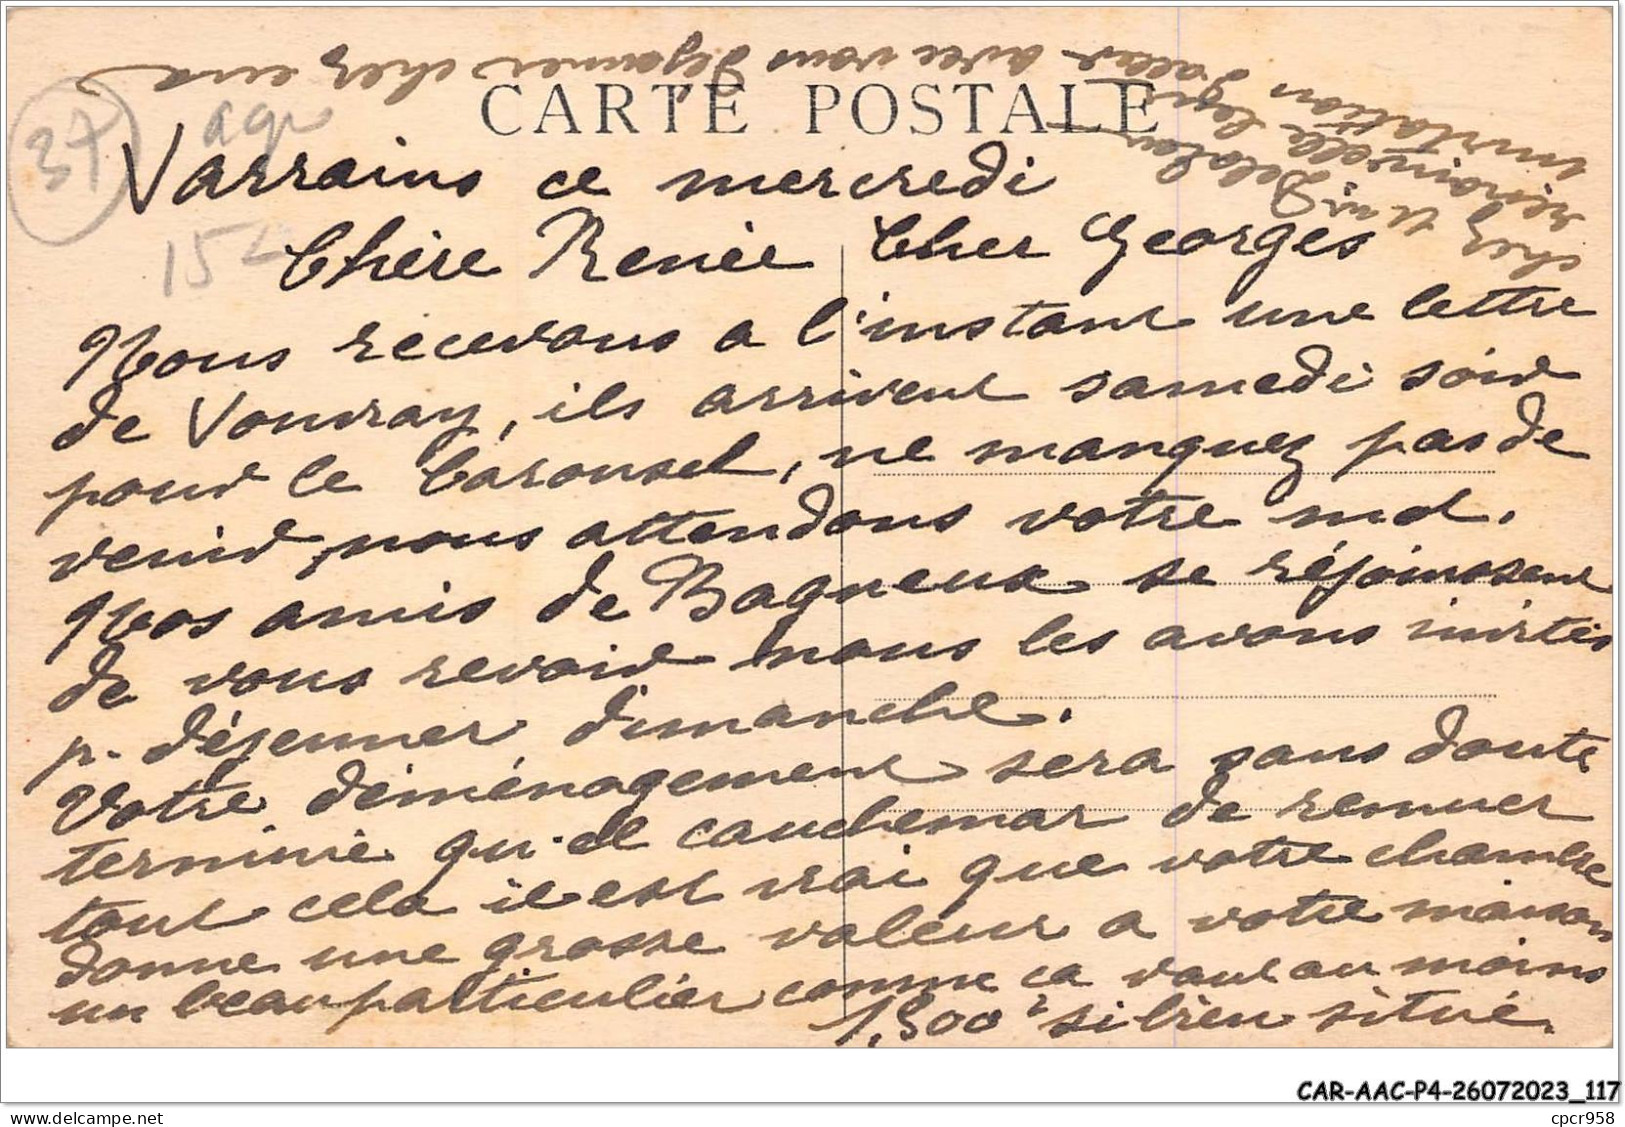 CARTE POSTALE
37
agr
15
Varrains ce mercredi
Chère Renée Cher Georges
Nous recevons a l'instant une lettre
de Vouvray, ils arrivent samedi soir
pour le Carousel, ne manquez pas de
venir, nous attendons votre mot.
Nos amis de Bagneux se réjouissent
de vous revoir nous les avons invités
p. déjeuner dimanche.
Votre déménagement sera sans doute
terminé qu'el cauchemar de remuer
tout cela il est vrai que votre chambre
donne une grosse valeur a votre maison
un beau particulier comme ca vaut au moins
1,500 si bien situé.
chez
renouvelle
invitation d'aller avec vous déjeuner chez eux
CAR-AAC-P4-26072023_117
delcampe.net
cpcr958